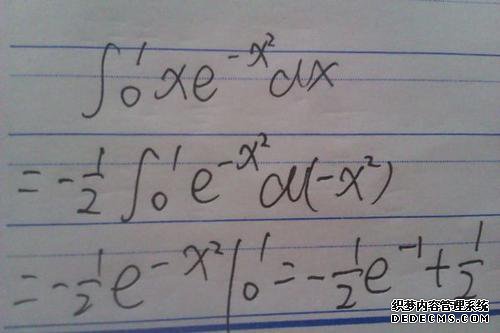 ∫₀¹ xe^{-x²}dx
= -1/2 ∫₀¹ e^{-x²}d(-x²)
= -1/2 e^{-x²}|₀¹ = -1/2 e^{-1} + 1/2
织梦内容管理系统
DEDECMS.COM